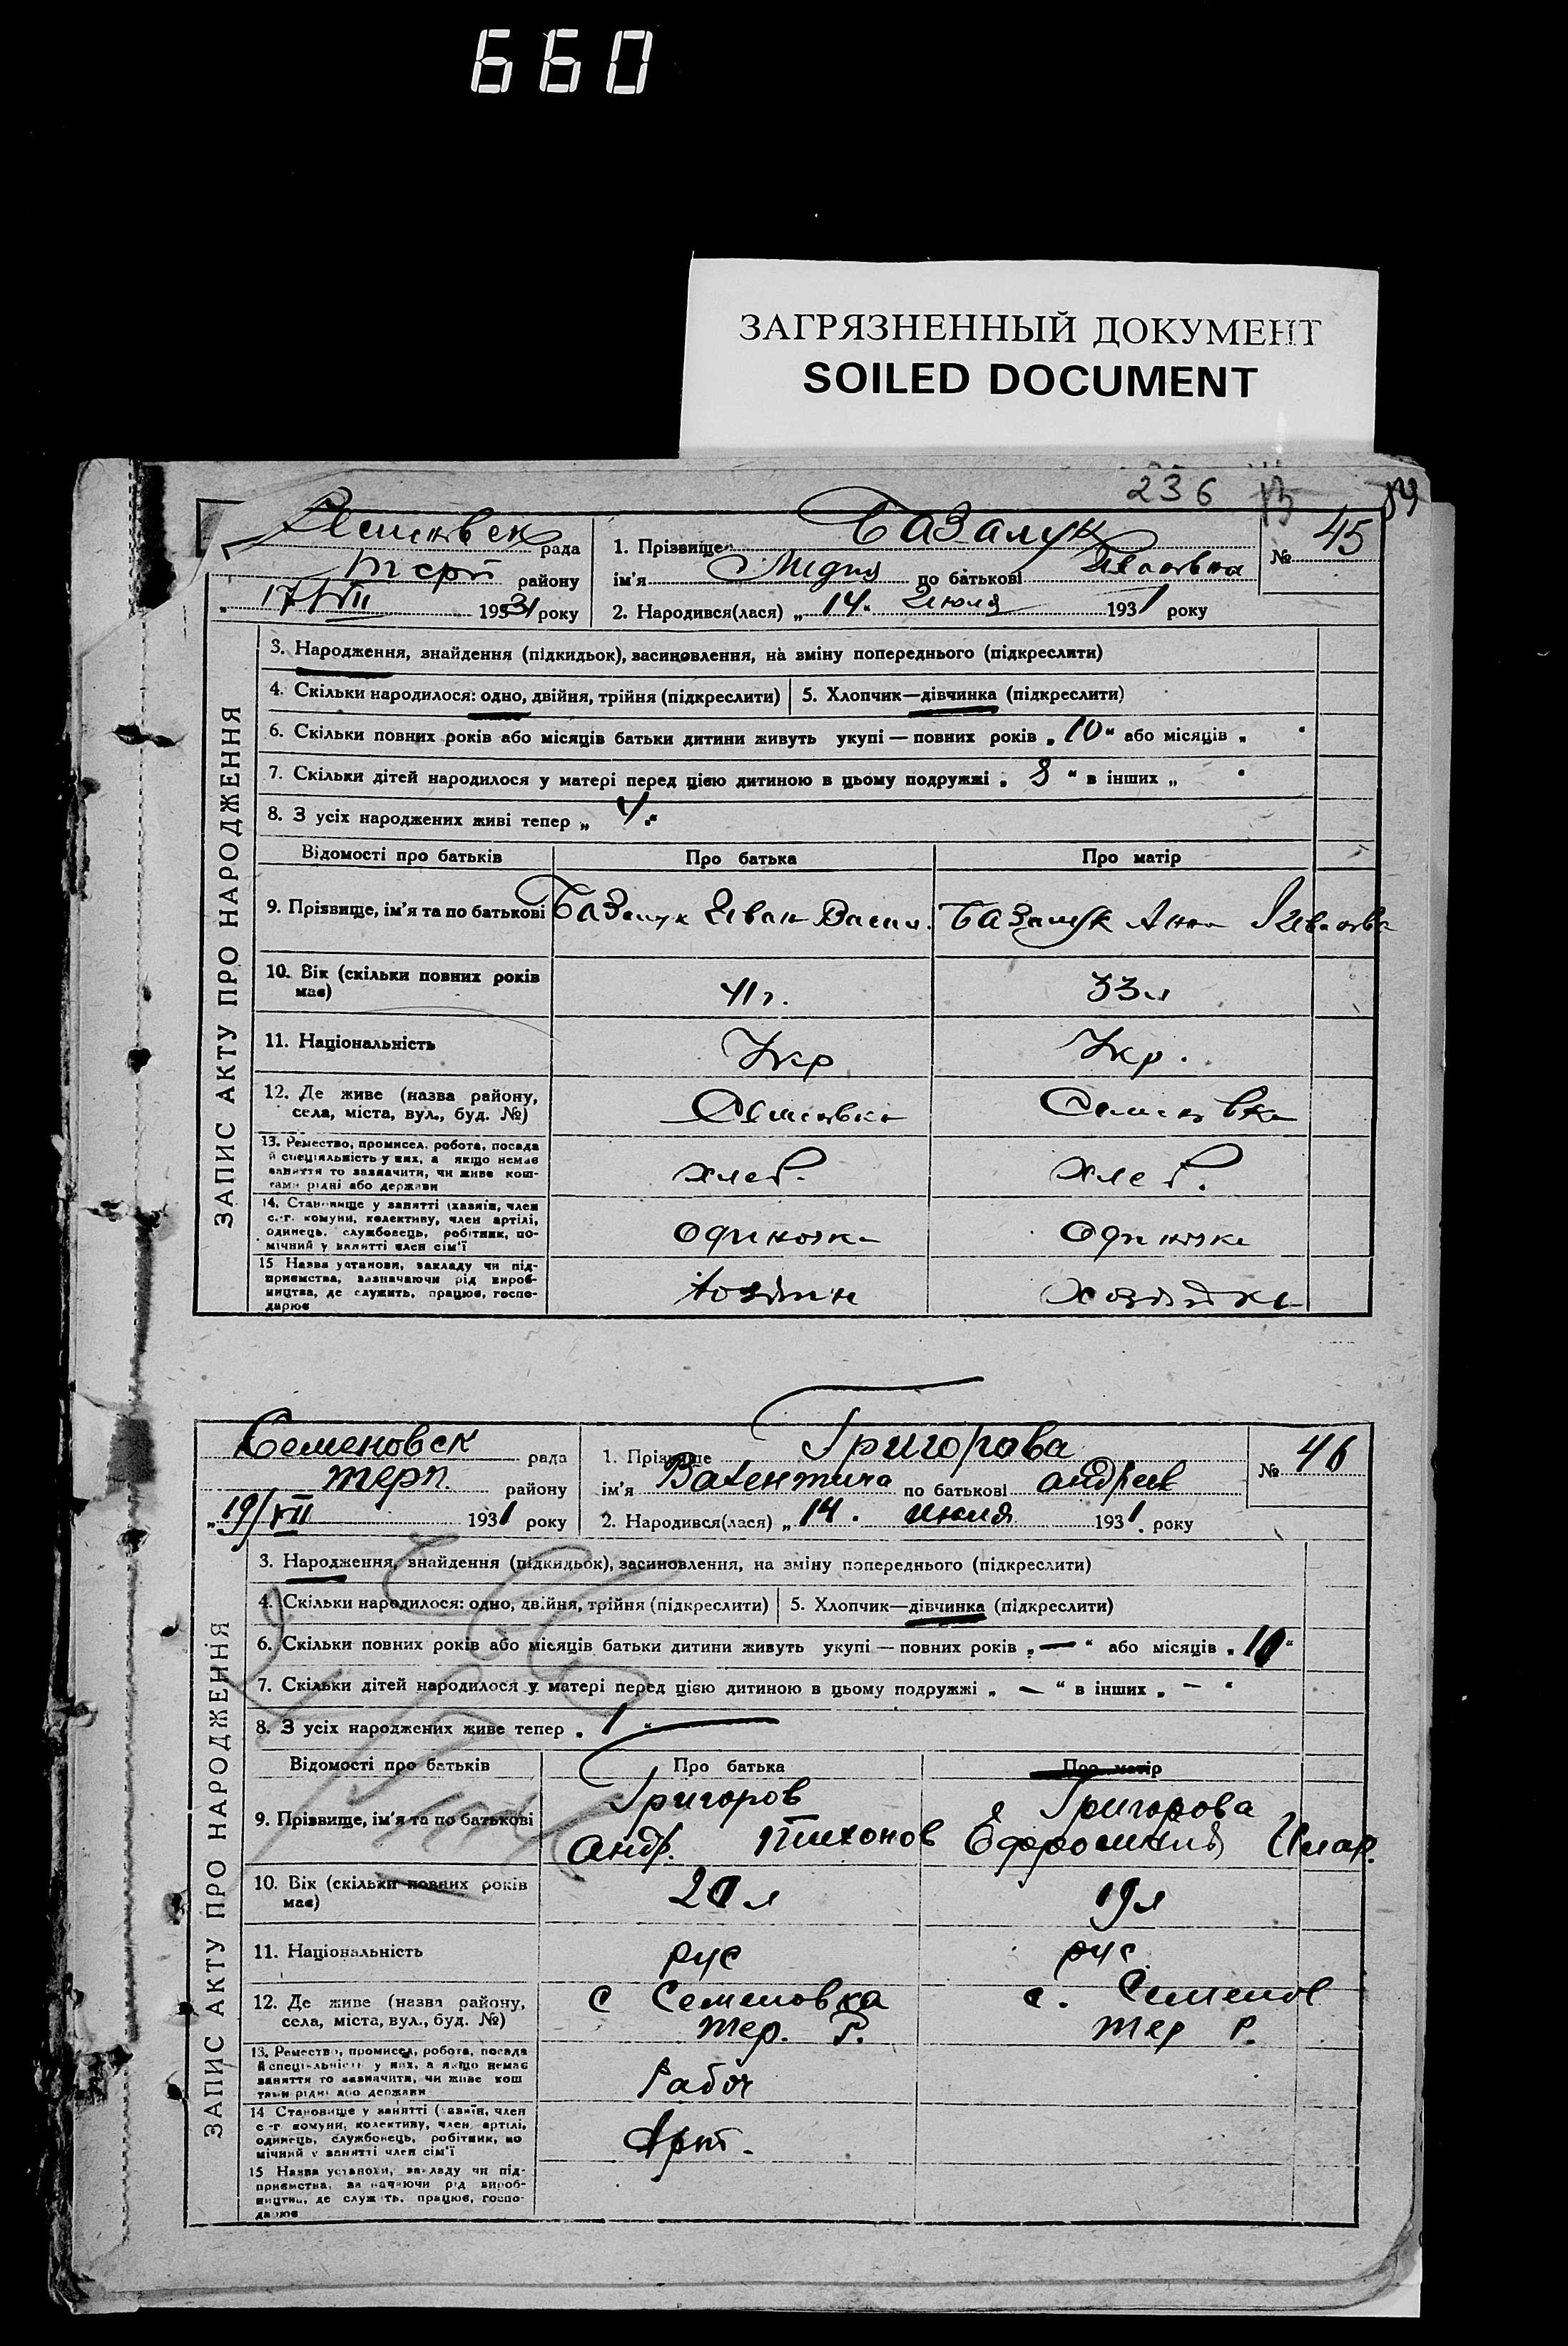 660
ЗАГРЯЗНЕННЫЙ ДОКУМЕНТ
SOILED DOCUMENT
236
ЗАПИС АКТУ ПРО НАРОДЖЕННЯ
рада
Терп району
17/VII 1931 року
1. Прізвище Базалук
ім'я Лидия по батькові Ивановна
№ 45
2. Народився(лася) „14" Июля 1931 року
3. Народження, знайдення (підкидьок), засиновлення, на зміну попереднього (підкреслити)
4. Скільки народилося: одно, двійня, трійня (підкреслити) 5. Хлопчик—дівчинка (підкреслити)
6. Скільки повних років або місяців батьки дитини живуть укупі — повних років „10" або місяців „ "
7. Скільки дітей народилося у матері перед цією дитиною в цьому подружжі „ " в інших „ "
8. З усіх народжених живі тепер „4"
Відомості про батьків Про батька Про матір
9. Прізвище, ім'я та по батькові Базалук Иван Васил. Базалук Анна Ивановна
10. Вік (скільки повних років
має) 41г. 33л
11. Національність Укр Укр.
12. Де живе (назва району,
села, міста, вул., буд. №) Семеновка Семеновка
13. Ремество, промисел, робота, посада
й спеціяльність у них, а якщо немає
заняття то зазначити, чи живе кош-
тами рідні або держави хлеб. хлеб.
14. Становище у занятті (хазяїн, член
с.-г. комуни, колективу, член артілі,
одинець, службовець, робітник, по-
мічний у занятті член сім'ї
15 Назва установи, закладу чи під-
приємства, зазначаючи рід вироб-
ництва, де служить, працює, госпо-
дарює хозяин хозяйка
ЗАПИС АКТУ ПРО НАРОДЖЕННЯ
Семеновск рада
терп. району
„19/VII 1931 року
1. Прізвище Григорова
ім'я Валентина по батькові андреев
№ 46
2. Народився(лася) „14. июля 1931. року
3. Народження, знайдення (підкидьок), засиновлення, на зміну попереднього (підкреслити)
4. Скільки народилося: одно, двійня, трійня (підкреслити) 5. Хлопчик—дівчинка (підкреслити)
6. Скільки повних років або місяців батьки дитини живуть укупі — повних років „—" або місяців „10"
7. Скільки дітей народилося у матері перед цією дитиною в цьому подружжі „—" в інших „—"
8. З усіх народжених живе тепер „1"
Відомості про батьків Про батька Про матір
9. Прізвище, ім'я та по батькові Григоров Григорова
андр. Тихонов Ефросиния
10. Вік (скільки повних років
має) 20л 19л
11. Національність рус рус
12. Де живе (назва району,
села, міста, вул., буд. №) с Семеновка с. Семенов
тер. Р. тер Р.
13. Ремество, промисел, робота, посада
й спеціяльність у них, а якщо немає
заняття то зазначити, чи живе кош
тами рідні або держави Рабоч
14 Становище у занятті (хазяїн, член
с-г. комуни, колективу, член артілі,
одинець, службовець, робітник, по
мічний у занятті член сім'ї Арт.
15 Назва установи, закладу чи під-
приємства, зазначаючи рід вироб-
ництва, де служить, працює, госпо-
дарює